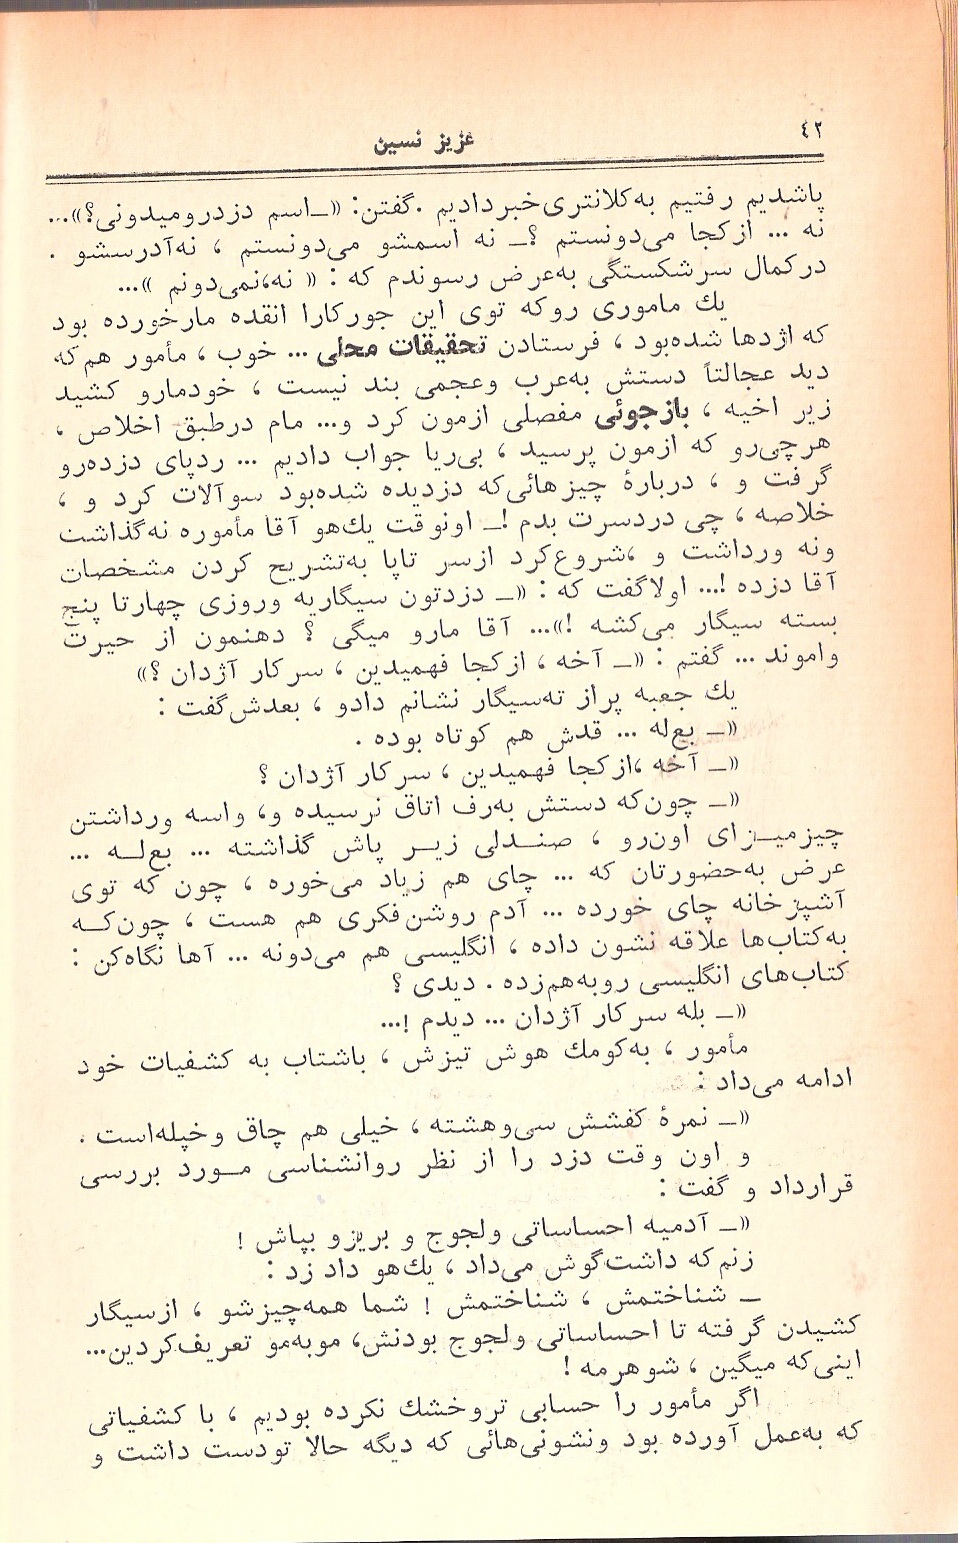 ۴۲
عزیز نسین
پاشدیم رفتیم به‌کلانتری‌خبردادیم .گفتن: «ـ‌اسم دزدرومیدونی؟»...
نه ... ازکجا می‌دونستم ؟ـ نه اسمشو می‌دونستم ، نه‌آدرسشو .
درکمال سرشکستگی به‌عرض رسوندم که : « نه،نمی‌دونم »...
یك ماموری روکه توی این جورکارا انقده مارخورده بود
که اژدها شده‌بود ، فرستادن تحقیقات محلی ... خوب ، مأمور هم‌که
دید عجالتاً دستش به‌عرب وعجمی بند نیست ، خودمارو کشید
زیر اخیه ، بازجوئی مفصلی ازمون کرد و... مام درطبق اخلاص ،
هرچی‌رو که ازمون پرسید ، بی‌ریا جواب دادیم ... ردپای دزده‌رو
گرفت و ، دربارهٔ چیزهائی‌که دزدیده شده‌بود سوآلات کرد و ،
خلاصه ، چی دردسرت بدم !ـ اونوقت یك‌هو آقا مأموره نه‌گذاشت
ونه ورداشت و ،شروع‌کرد ازسر تاپا به‌تشریح کردن مشخصات
آقا دزده !... اولاگفت که : «ـ دزدتون سیگاریه وروزی چهارتا پنج
بسته سیگار می‌کشه !»... آقا مارو میگی ؟ دهنمون از حیرت
واموند ... گفتم : «ـ آخه ، ازکجا فهمیدین ، سرکار آژدان ؟»
یك جعبه پراز ته‌سیگار نشانم دادو ، بعدش‌گفت :
«ـ بع‌له ... قدش هم کوتاه بوده .
«ـ آخه ،ازکجا فهمیدین ، سرکار آژدان ؟
«ـ چون‌که دستش به‌رف اتاق نرسیده و، واسه ورداشتن
چیزمیــزای اون‌رو ، صنــدلی زیــر پاش گذاشته ... بع‌لــه ...
عرض به‌حضورتان که ... چای هم زیاد می‌خوره ، چون که توی
آشپزخانه چای خورده ... آدم روشن‌فکری هم هست ، چون‌کــه
به‌کتاب‌ها علاقه نشون داده ، انگلیسی هم می‌دونه ... آها نگاه‌کن :
کتاب‌های انگلیسی روبه‌هم‌زده . دیدی ؟
«ـ بله سرکار آژدان ... دیدم !...
مأمور ، به‌کومك هوش تیزش ، باشتاب به کشفیات خود
ادامه می‌داد :
«ـ نمرهٔ کفشش سی‌وهشته ، خیلی هم چاق وخپله‌است .
و اون وقت دزد را از نظر روانشناسی مــورد بررسی
قرارداد و گفت :
«ـ آدمیه احساساتی ولجوج و بریزو بپاش !
زنم‌که داشت‌گوش می‌داد ، یك‌هو داد زد :
ـ شناختمش ، شناختمش ! شما همه‌چیزشو ، ازسیگار
کشیدن گرفته تا احساساتی ولجوج بودنش، موبه‌مو تعریف‌کردین...
اینی‌که میگین ، شوهرمه !
اگر مأمور را حسابی تروخشك نکرده بودیم ، با کشفیاتی
که به‌عمل آورده بود ونشونی‌هائی که دیگه حالا تودست داشت و